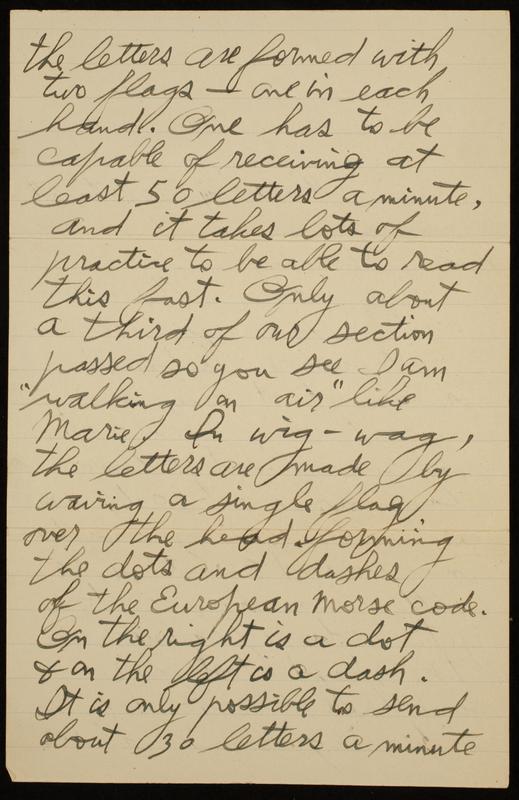 the letters are formed with
two flags — one in each
hand. One has to be
capable of receiving at
least 50 letters a minute,
and it takes lots of
practice to be able to read
this fast. Only about
a third of our section
passed so you see I am
"walking on air" like
Marie. In wig-wag,
the letters are made by
waving a single flag
over the head forming
the dots and dashes
of the European Morse code.
On the right is a dot
& on the left is a dash.
It is only possible to send
about 30 letters a minute